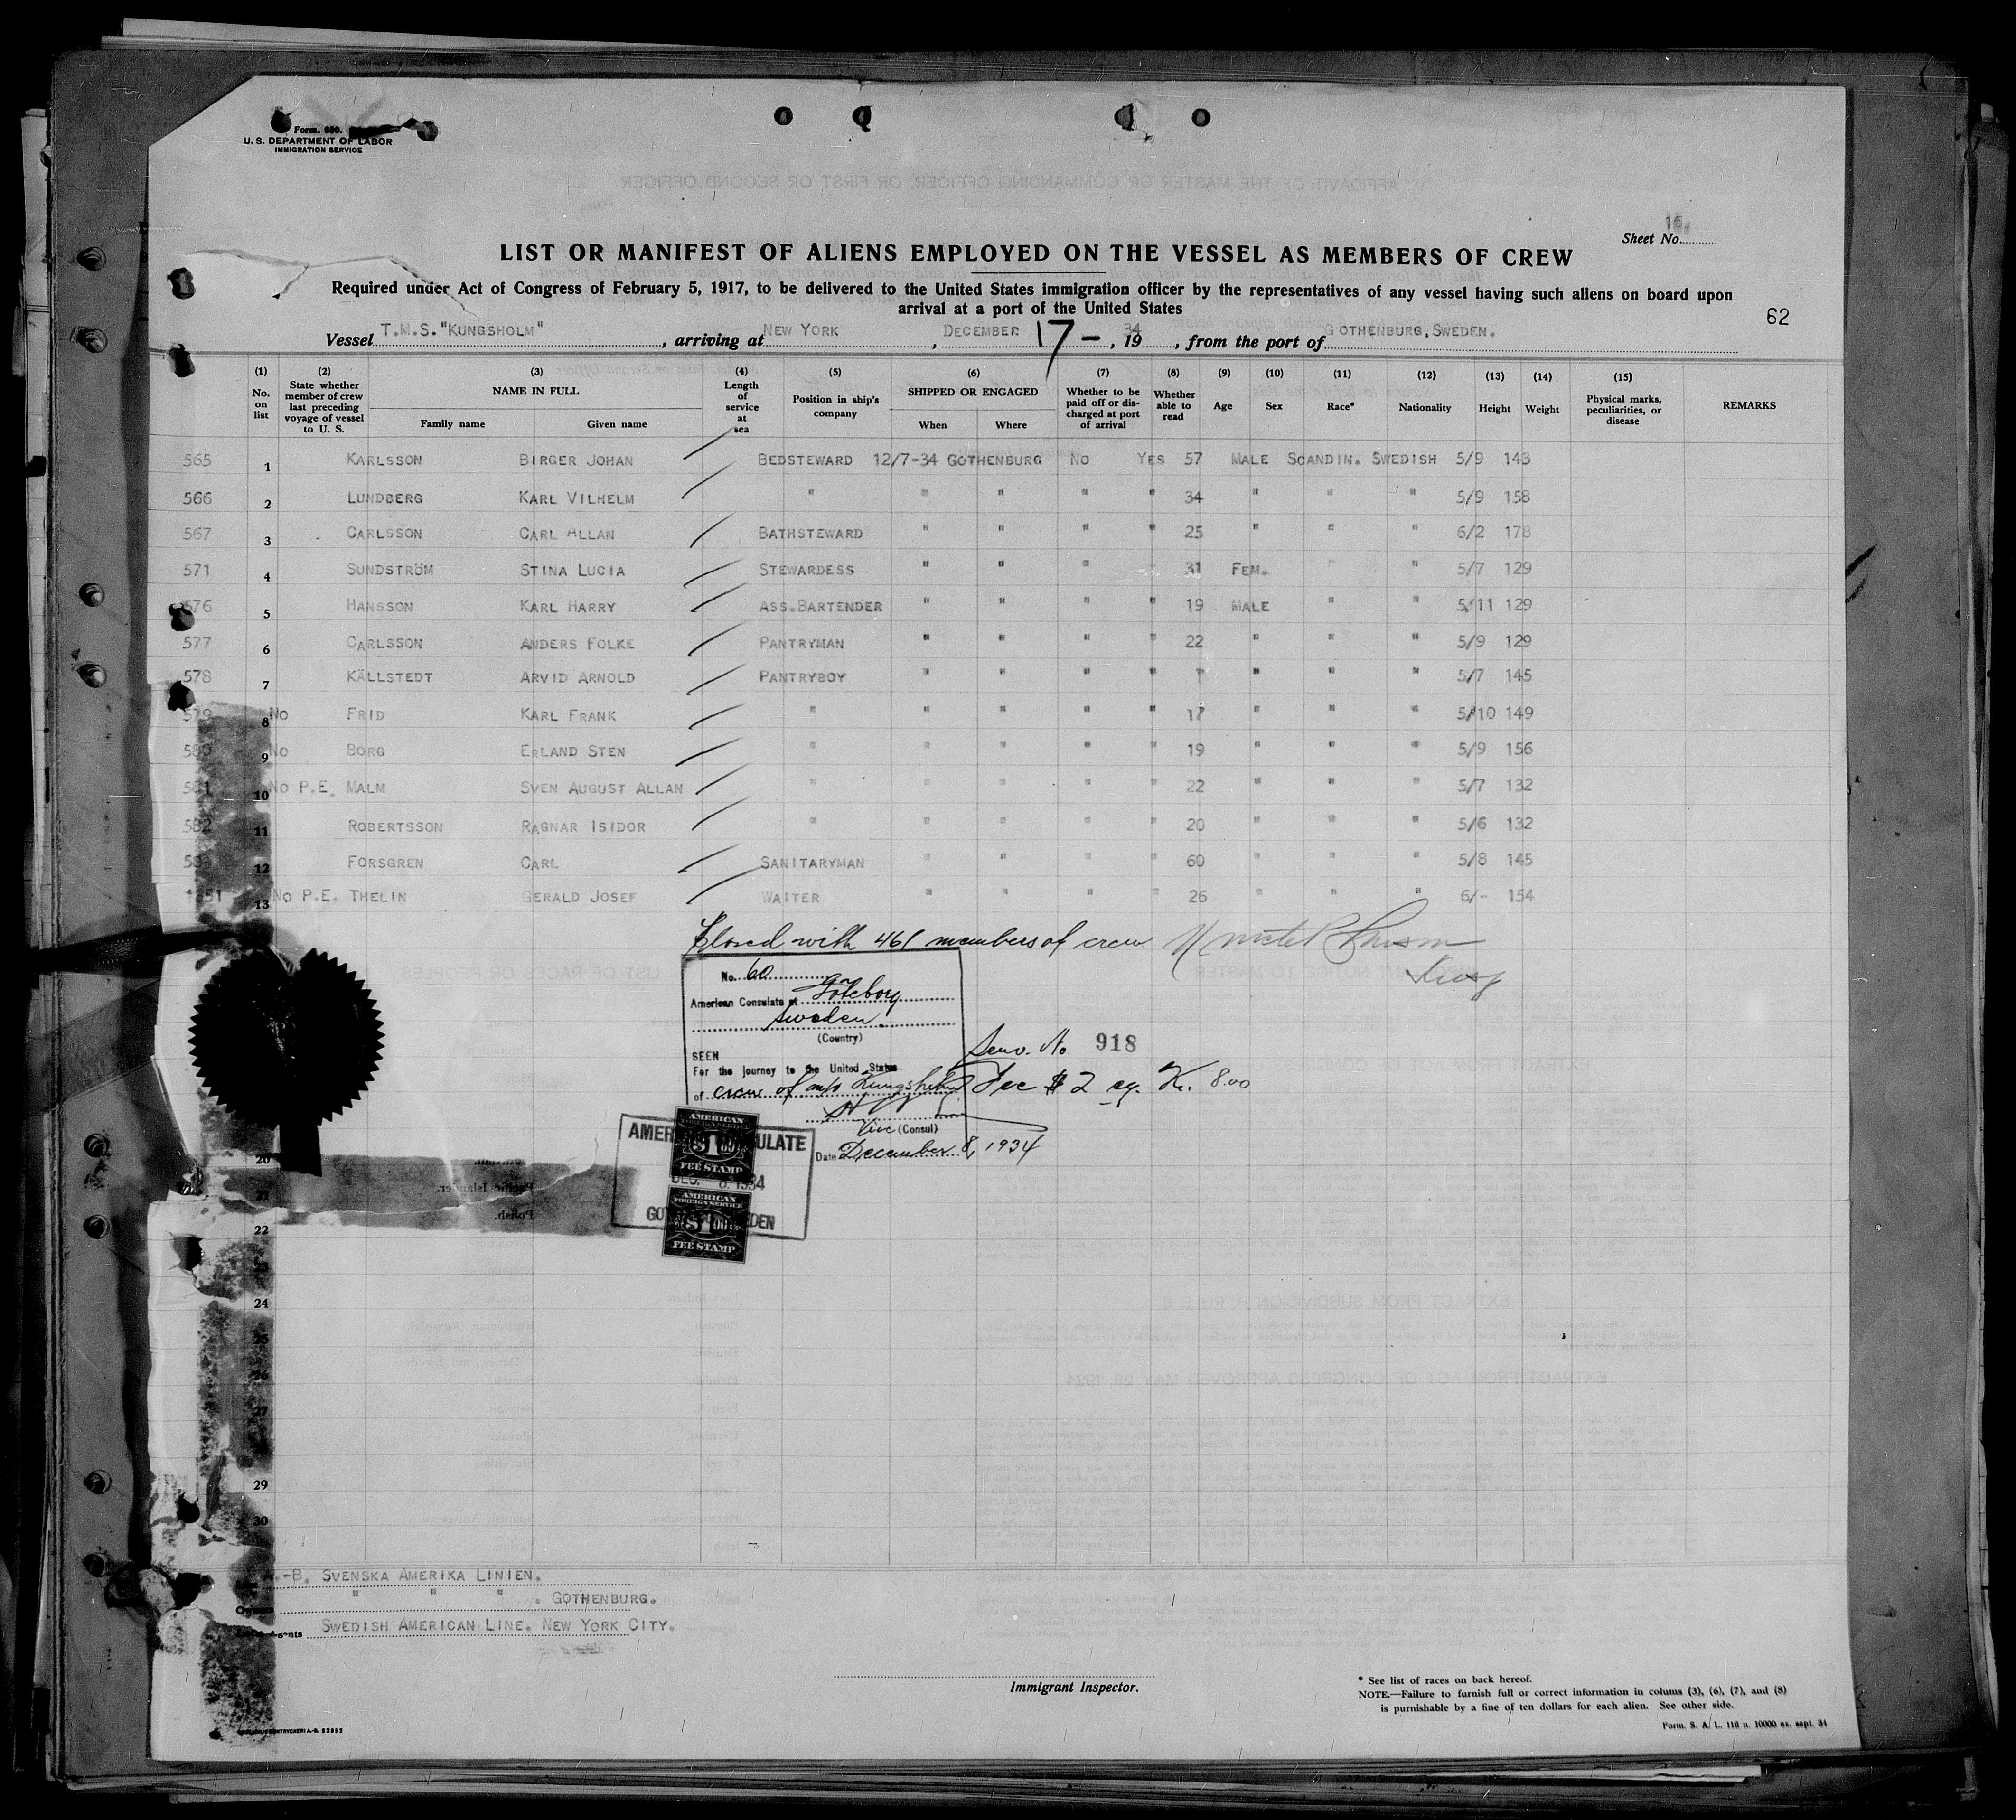 Form. 680.
U. S. DEPARTMENT OF LABOR
IMMIGRATION SERVICE
16.
Sheet No.
LIST OR MANIFEST OF ALIENS EMPLOYED ON THE VESSEL AS MEMBERS OF CREW
Required under Act of Congress of February 5, 1917, to be delivered to the United States immigration officer by the representatives of any vessel having such aliens on board upon
arrival at a port of the United States
62
Vessel T.M.S."KUNGSHOLM", arriving at NEW YORK, DECEMBER 17-, 1934, from the port of GOTHENBURG, SWEDEN.
(1) No. on list (2) State whether member of crew last preceding voyage of vessel to U. S. (3) NAME IN FULL Family name Given name (4) Length of service at sea (5) Position in ship's company (6) SHIPPED OR ENGAGED When Where (7) Whether to be paid off or discharged at port of arrival (8) Whether able to read (9) Age (10) Sex (11) Race* (12) Nationality (13) Height (14) Weight (15) Physical marks, peculiarities, or disease REMARKS
565 1 KARLSSON BIRGER JOHAN BEDSTEWARD 12/7-34 GOTHENBURG NO YES 57 MALE SCANDIN. SWEDISH 5/9 143
566 2 LUNDBERG KARL VILHELM " " " " " 34 " " " 5/9 158
567 3 CARLSSON CARL ALLAN BATHSTEWARD " " " " 25 " " " 6/2 178
571 4 SUNDSTRÖM STINA LUCIA STEWARDESS " " " 31 FEM. " " 5/7 129
576 5 HANSSON KARL HARRY ASS.BARTENDER " " " " 19 MALE " " 5/11 129
577 6 CARLSSON ANDERS FOLKE PANTRYMAN " " " " 22 " " " 5/9 129
578 7 KÄLLSTEDT ARVID ARNOLD PANTRYBOY " " " " " " " " 5/7 145
579 8 NO FRID KARL FRANK " " " " " 17 " " " 5/10 149
580 9 NO BORG ERLAND STEN " " " " " 19 " " " 5/9 156
581 10 NO P.E. MALM SVEN AUGUST ALLAN " " " " " 22 " " " 5/7 132
582 11 ROBERTSSON RAGNAR ISIDOR " " " " " 20 " " " 5/6 132
12 FORSGREN CARL SANITARYMAN " " " " 60 " " " 5/8 145
13 NO P.E. THELIN GERALD JOSEF WAITER " " " " 26 " " " 6/- 154
Closed with 461 members of crew
No. 60
American Consulate at Göteborg
Sweden.
(Country)
SEEN
For the journey to the United States
of crew of m/s Kungsholm
Serv. No. 918
Fee $ 2 eq. Kr. 8.00
Vice (Consul)
Date December 8, 1934
AMERICAN FOREIGN SERVICE
$1.00
FEE STAMP
DEC. 8. 1934
AMERICAN
FOREIGN SERVICE
$1.00
FEE STAMP
20
21
22
24
25
26
27
29
30
A.-B. SVENSKA AMERIKA LINIEN.
" " " . GOTHENBURG.
Agents SWEDISH AMERICAN LINE. NEW YORK CITY.
Immigrant Inspector.
* See list of races on back hereof.
NOTE.—Failure to furnish full or correct information in colums (3), (6), (7), and (8)
is punishable by a fine of ten dollars for each alien. See other side.
Form. S. A. L. 116 n. 10000 ex. sept. 34